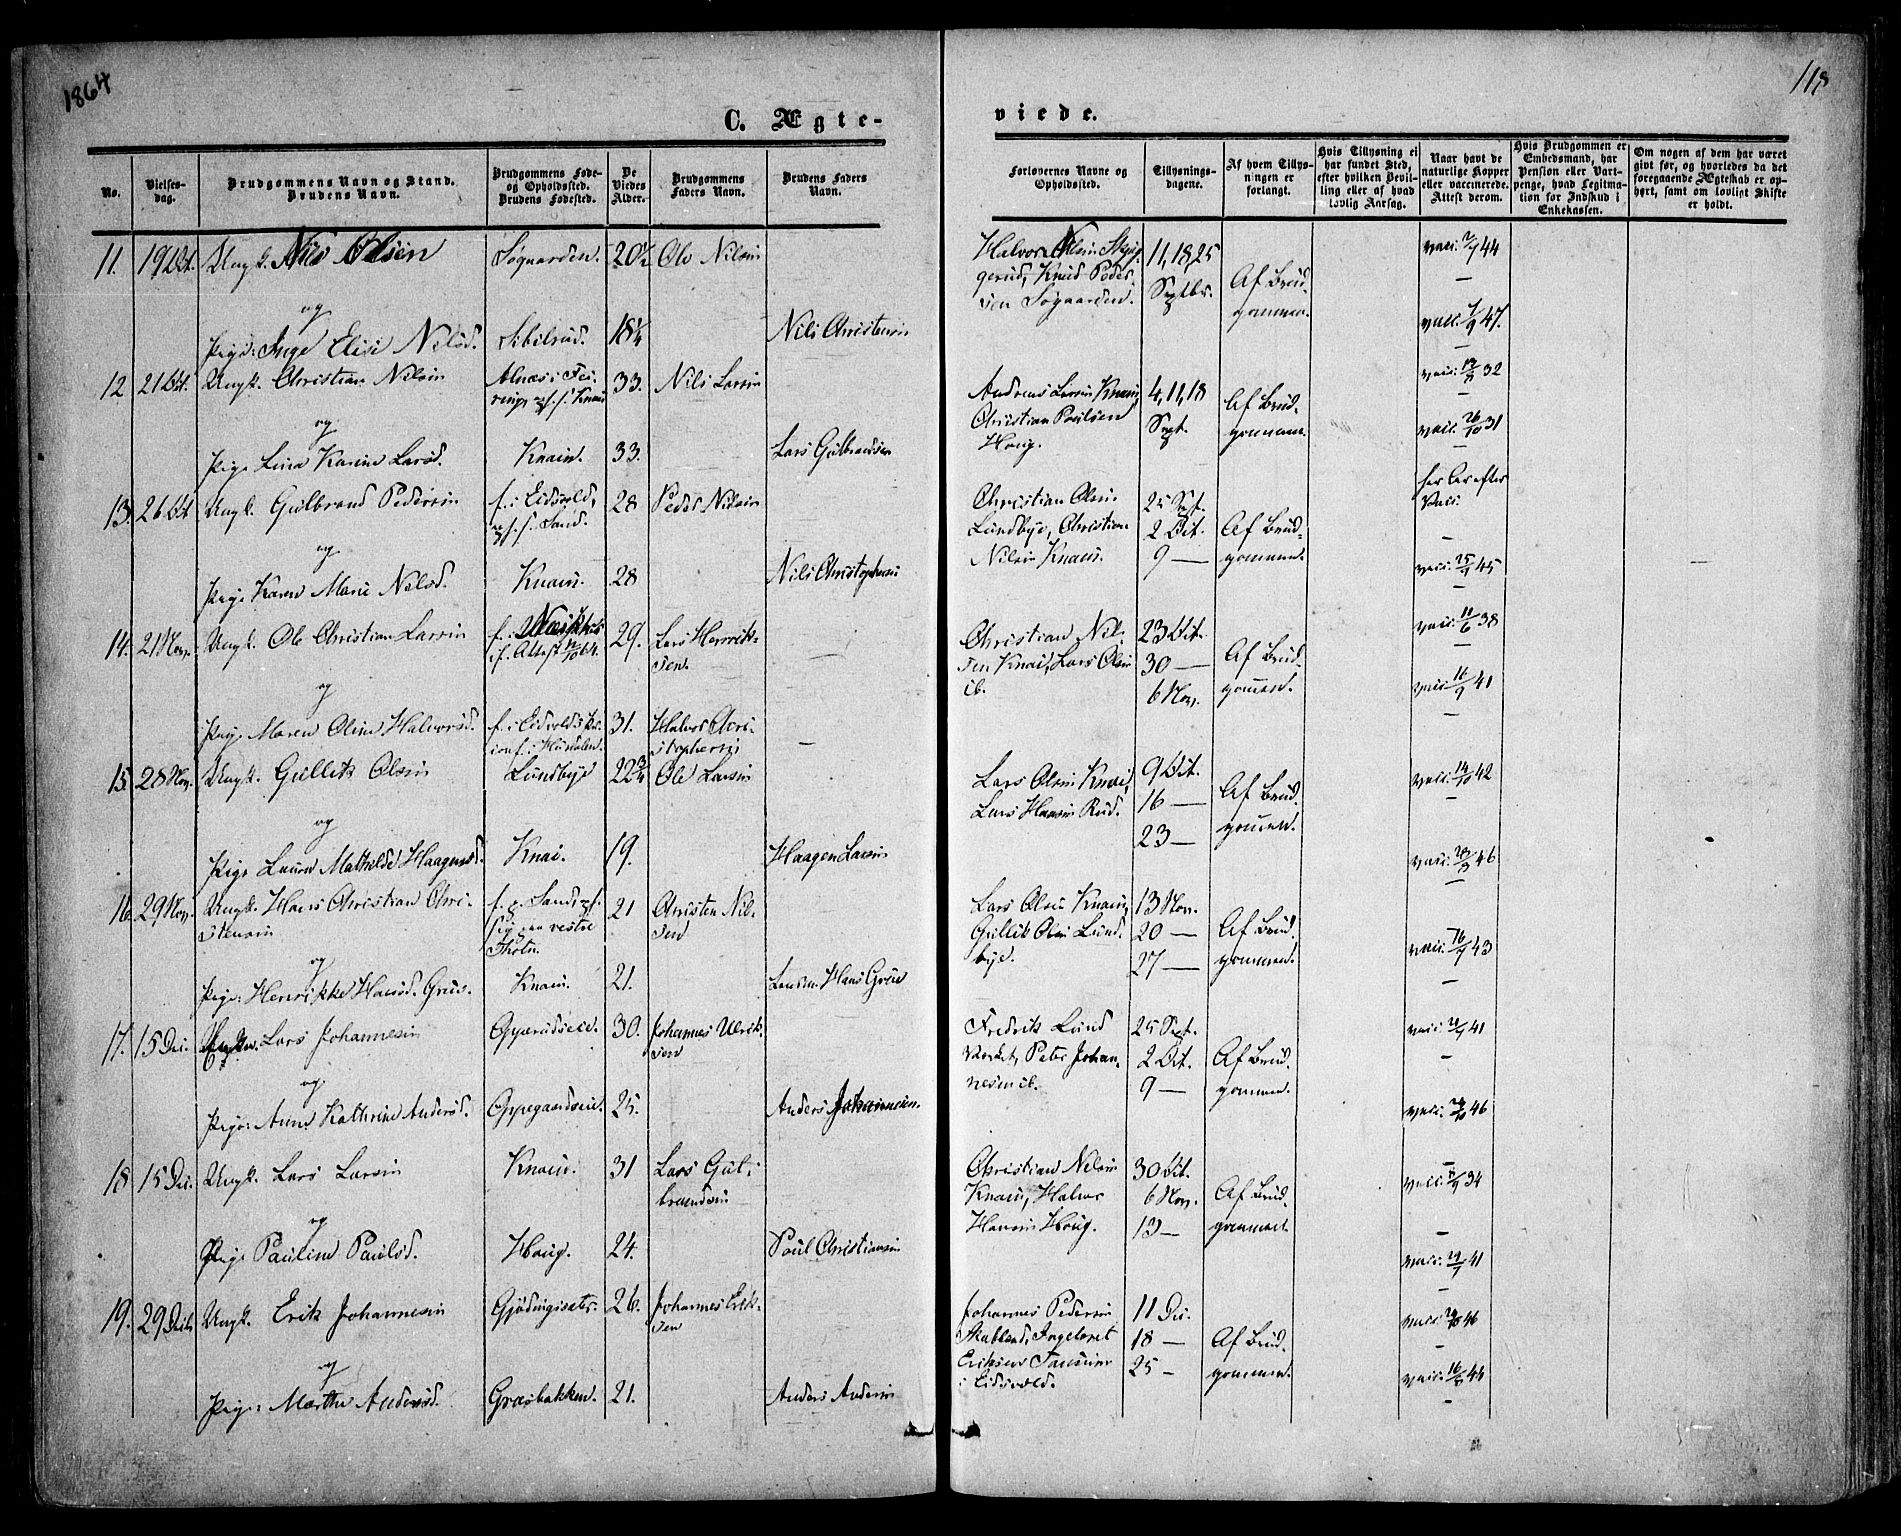 1864
118
C. Ægte-
viede.
No.
Vielses-
dag.
Brudgommens Navn og Stand.
Brudens Navn.
Brudgommens Føde-
og Opholdssted.
Brudens Fødested.
De
Viedes
Alder.
Brudgommens
Faders Navn.
Brudens Faders
Navn.
Forlovernes Navne og
Opholdssted.
Tillysnings-
dagene.
Af hvem Tillys-
ningen er
forlangt.
Hvis Tillysning ei
har fundet Sted,
efter hvilken Bevil-
ling eller af hvad
lovlig Aarsag.
Naar havt de
naturlige Kopper
eller vaccinerede.
Attest derom.
Hvis Brudgommen er
Embedsmand, har
Pension eller Vart-
penge, hvad Legitma-
tion for Indskud i
Enkekassen.
Om nogen af dem har været
givt før, og hvorledes da det
foregaaende Ægteskab er op-
hørt, samt om lovligt Skifte
er holdt.
11. 19 Oct. Ungk. Nils Olsen Søgaarden. 20½ Ole Nilsen
Halvor Olsen
gerud, Knud Peder
sen Søgaarden.
11, 18, 25
Septbr.
Af Brud-
gommen.
vacc. 2/9 44
og
Pige: Inge Elise Nilsd. Sibilrud. 18¼ Nils Christensen
vacc. 7/9 47.
12 21 Oct. Ungk. Christian Nilsen Alnæs i Fei-
ring, Knai 33. Nils Larsen
Andreas Larsen Knai,
Christian Paulsen
Houg.
4, 11, 18
Sept.
Af Brud-
gommen.
vacc. 13/8 32
og
Pige Lina Karine Larsd. Knain. 33. Lars Gulbrandsen
vacc. 26/10 31
13. 26 Oct Ungk. Gulbrand Pedersen f. i Eidsvold,
Sand. 28 Peder Nilsen
Christian Olsen
Lundbye, Christian
Nilsen Knain.
25 Sept.
2 Oct.
9 —
Af Brud-
gommen.
har Ar efter
Vacc.
og
Pige Karen Marie Nilsd. Knain. 28 Nils Christophersen
vacc. 25/9 45
14. 21 Nov. Ungk. Ole Christian Larsen
if. Attest 64. 29. Lars Henrik-
sen.
Christian Nil-
sen Knai, Lars Olsen
ib.
23 Oct.
30 —
6 Nov.
Af Brud-
gommen.
vacc. 11/6 38
og
Pige Maren Oline Halvorsd. f. i Eidsvold,
conf. i Hurdalen. 31. Halvor Chri-
stophersen —
vacc. 16/9 41
15. 28 Nov. Ungk. Gullik Olsen Lundbye 22¾ Ole Larsen
Lars Olsen Knai,
Lars Hansen Rud.
9 Oct.
16 —
23 —
Af Brud-
gommen.
vacc. 14/10 42
og
Pige Laura Mathilde Haagensd. Knai. 19. Haagen Larsen
vacc. 46
16. 29 Nov. Ungk. Hans Christian Chri-
stensen f. p. Sand,
vestre
Thoten. 21 Christen Nil-
sen
Lars Olsen Knain,
Gullik Olsen Lund-
bye.
13 Nov.
20 —
27 —
Af Brud-
gommen.
vacc. 16/9 43
og
Pige: Henrikke Hansd. Grue. Knain. 21. Hans Grue
17. 15 Dec. Lars Johannesen 30. Johannes Ulrik-
sen
Fredrik Lund
Værket, Peter Johan-
nesen ib.
25 Sept.
2 Oct.
9 —
Af Brud-
gommen.
vacc. 41
og
Pige: Anne Kathrine Andersd. Oppegaardseie. 25. Anders Johannesen.
vacc. 46
18 15 Dec. Ungk. Lars Larsen Knain. 31 Lars Gul-
brandsen
Christian Nilsen
Knain, Halvor
Hansen Houg.
30 Oct.
6 Nov.
13 —
Af Brud-
gommen.
vacc. 34
og
Pige Pauline Paulsd. Houg. 24. Poul Christiansen
vacc. 41
19. 29 Dec. Ungk. Erik Johannesen 26. Johannes Erik-
sen
Johannes Pedersen
Ingebret
Eriksen
i Eidsvold.
11 Dec.
18 —
25 —
Af Brud-
gommen.
vacc. 46
og
Pige: Marthe Andersd. Græsbakken. 21. Anders Andersen
vacc. 16/8 44